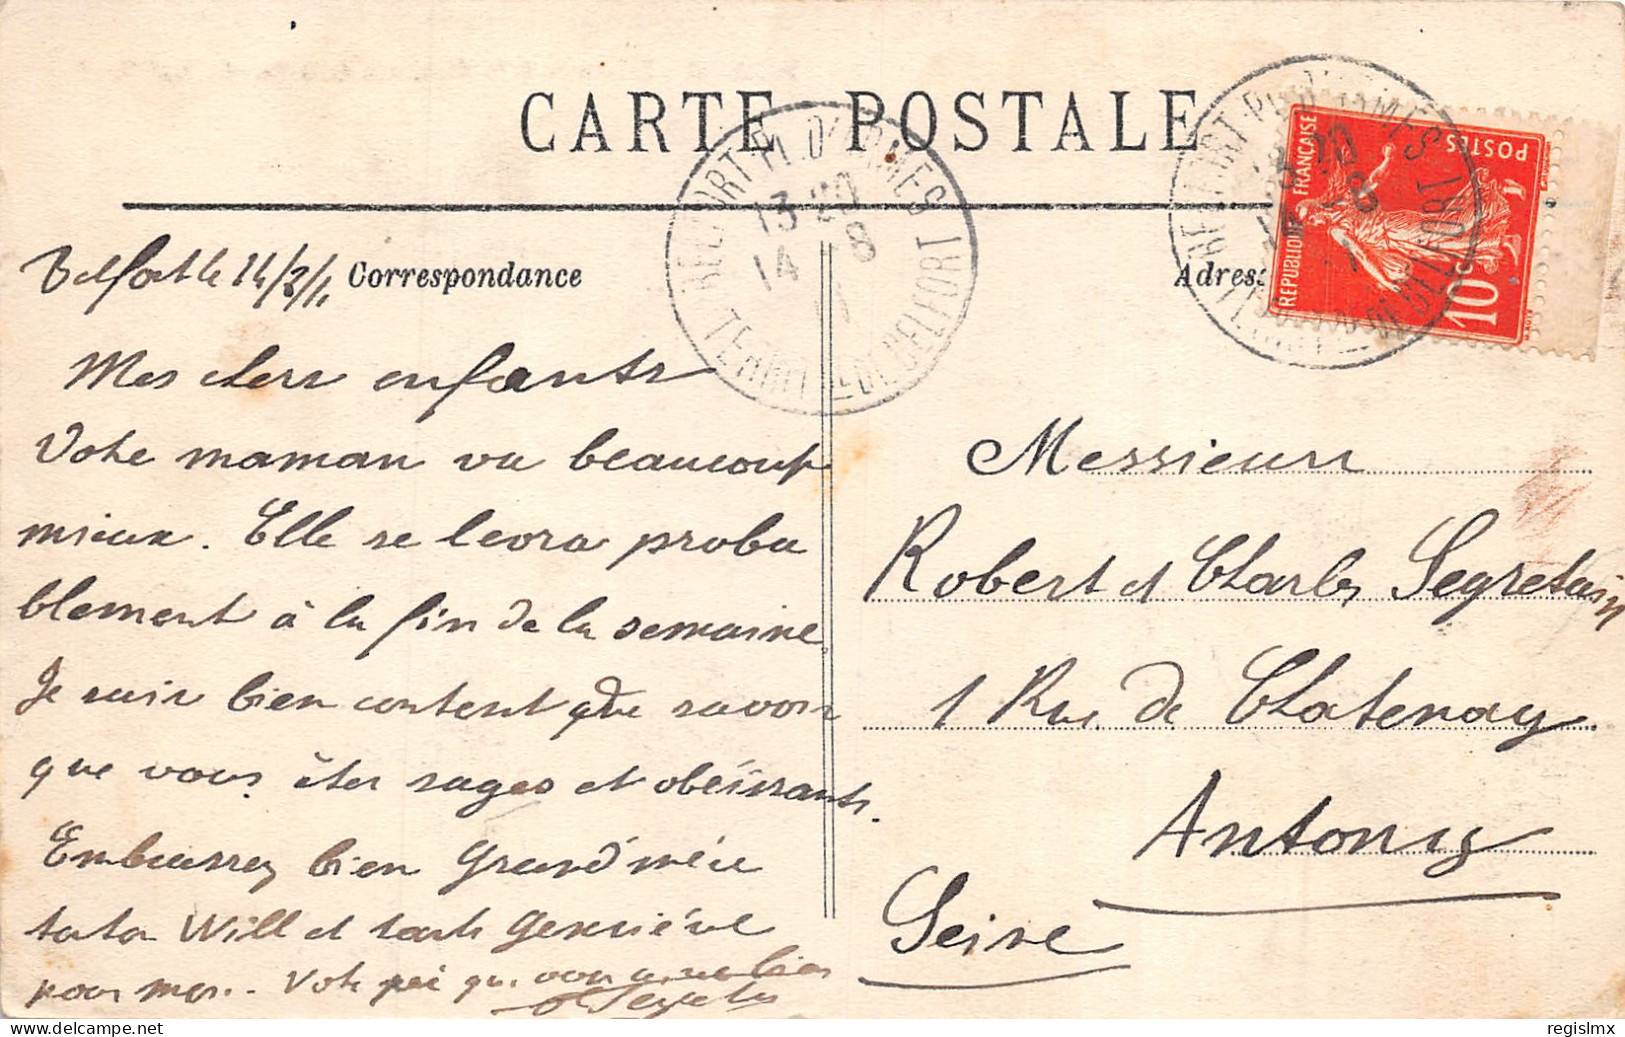 CARTE POSTALE
BELFORT PL. D'ARMES
13-20
14 -8
11
TERRIT. RE DE BELFORT
BELFORT PL. D'ARMES
TERRIT. RE DE BELFORT
REPUBLIQUE FRANÇAISE
POSTES
10c
Belfort le 14/8/11
Correspondance
Mes chers enfants
Votre maman va beaucoup
mieux. Elle se lèvera proba
blement à la fin de la semaine.
Je suis bien content de savoir
que vous êtes sages et obéissants.
Embrassez bien Grand'mère
tata Will et tante Geneviève
pour moi. Votre père qui vous aime bien
Segretain
Adresse
Messieurs
Robert et Charles Segretain
1 Rue de Chatenay
Antony
Seine
regislmx